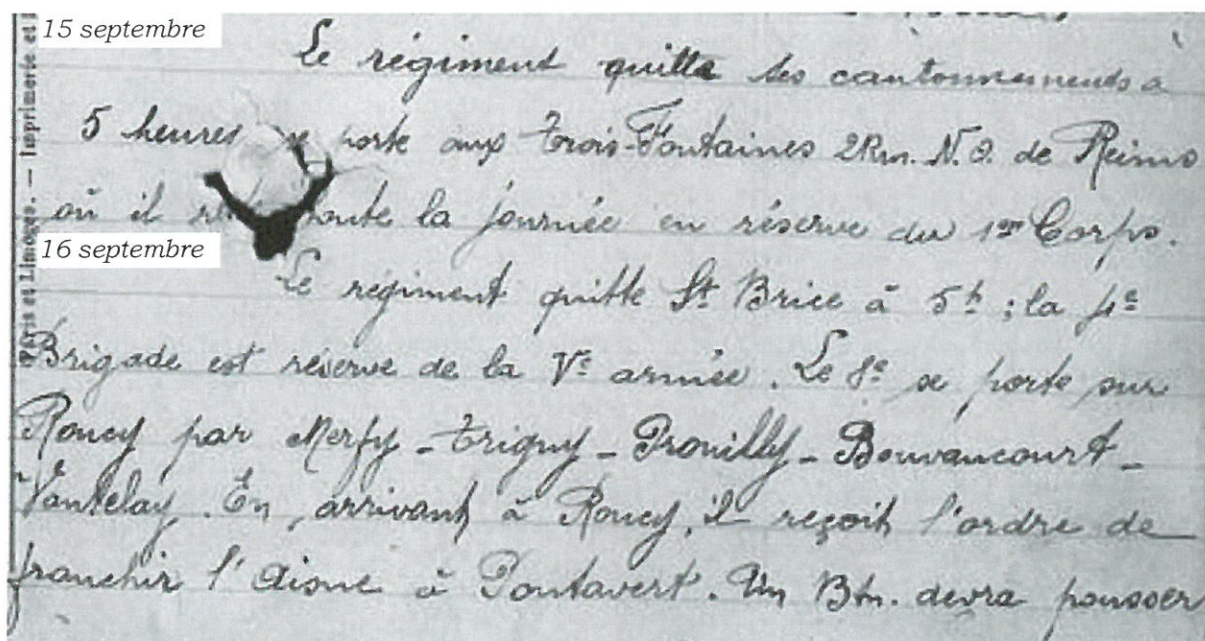 15 septembre
Le régiment quitte ses cantonnements à
5 heures se porte aux Trois-Fontaines 2Km. N.O. de Reims
où il reste toute la journée en réserve du 1er Corps.
16 septembre
Le régiment quitte St Brice à 5h ; la 4e
Brigade est réserve de la Ve armée. Le 8e se porte sur
Roucy par Merfy - Trigny - Prouilly - Bouvancourt -
Vantelay. En arrivant à Roucy, il reçoit l'ordre de
franchir l'Aisne à Pontavert. Un Btn. devra pousser
Paris et Limoges. — Imprimerie et